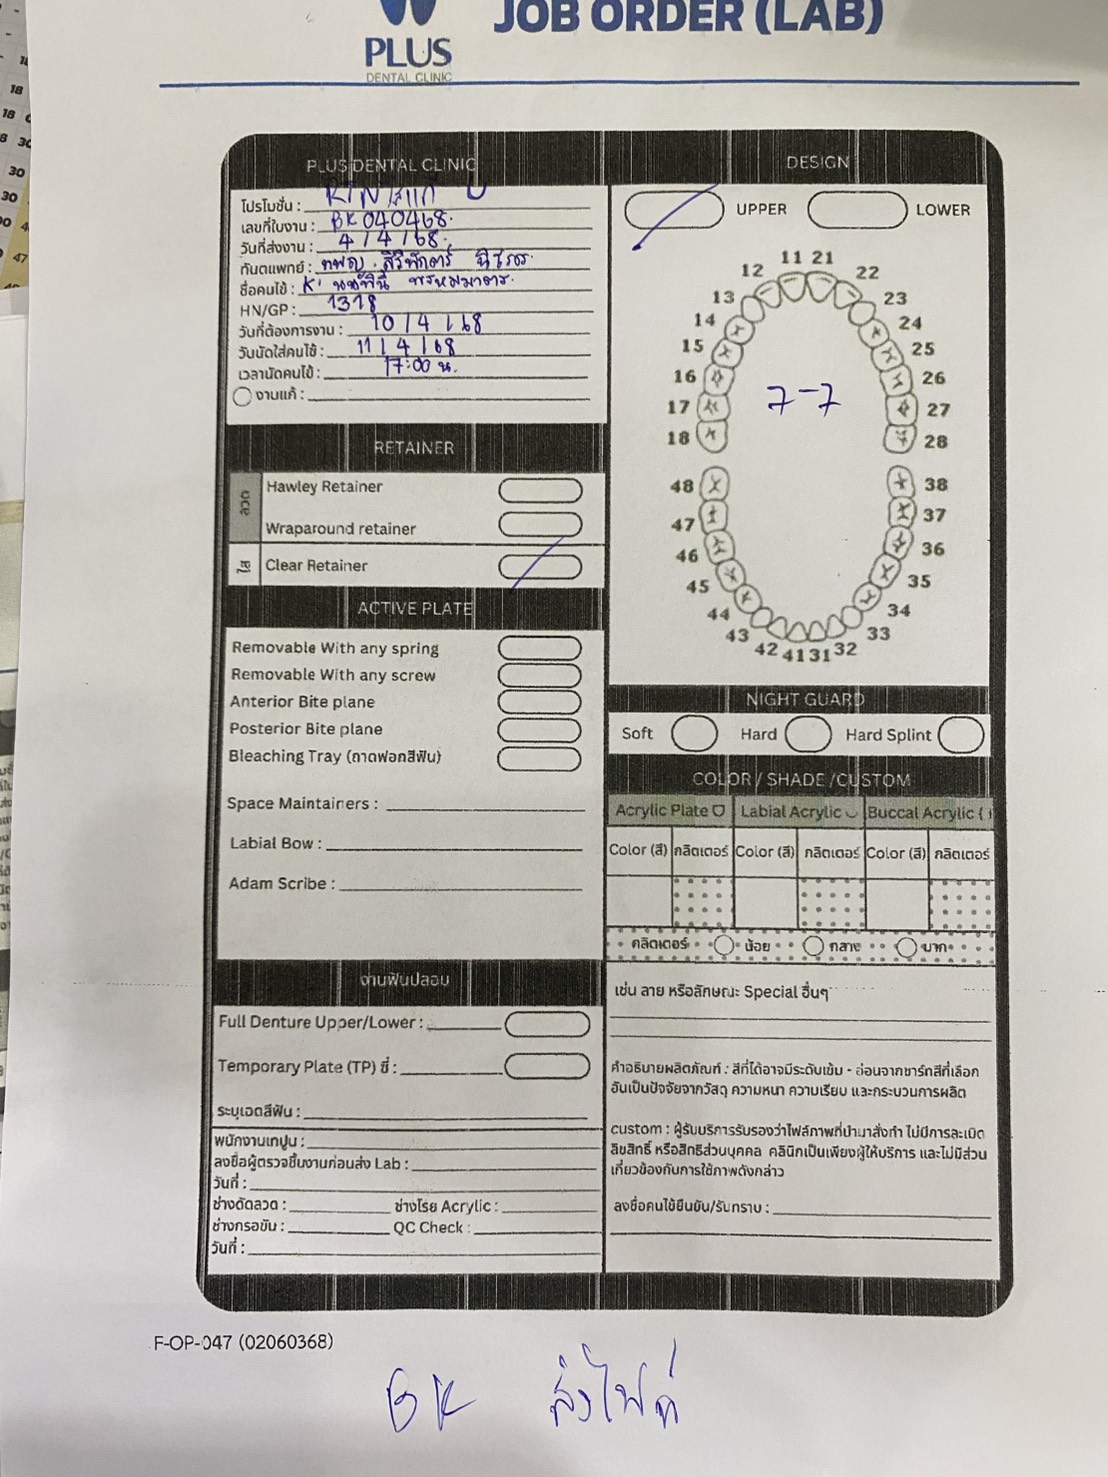 JOB ORDER (LAB)
PLUS
DENTAL CLINIC
PLUS DENTAL CLINIC
โปรโมชั่น :
เลขที่ใบงาน : BK 040468.
วันที่ส่งงาน : 4 / 4 / 68.
ทันตแพทย์ : ทพญ.
ชื่อคนไข้ : K'
HN/GP : 1318
วันที่ต้องการงาน : 10 / 4 / 68
วันนัดใส่คนไข้ : 11 / 4 / 68
เวลานัดคนไข้ : 17:00 น.
งานแก้ :
RETAINER
ลวด
Hawley Retainer
Wraparound retainer
ใส
Clear Retainer
ACTIVE PLATE
Removable With any spring
Removable With any screw
Anterior Bite plane
Posterior Bite plane
Bleaching Tray (ถาดฟอกสีฟัน)
Space Maintainers :
Labial Bow :
Adam Scribe :
งานฟันปลอม
Full Denture Upper/Lower :
Temporary Plate (TP) ซี่ :
ระบุเฉดสีฟัน :
พนักงานเทปูน :
ลงชื่อผู้ตรวจชิ้นงานก่อนส่ง Lab :
วันที่ :
ช่างดัดลวด : ช่างโรย Acrylic :
ช่างกรอขัน : QC Check :
วันที่ :
DESIGN
UPPER LOWER
11 21
12 22
13 23
14 24
15 25
16 26
7-7
17 27
18 28
48 38
47 37
46 36
45 35
44 34
43 33
42 41 31 32
NIGHT GUARD
Soft Hard Hard Splint
COLOR / SHADE /CUSTOM
Acrylic Plate Labial Acrylic Buccal Acrylic
Color (สี) กลิตเตอร์ Color (สี) กลิตเตอร์ Color (สี) กลิตเตอร์
กลิตเตอร์ น้อย กลาง มาก
เช่น ลาย หรือลักษณะ Special อื่นๆ
คำอธิบายผลิตภัณฑ์ : สีที่ได้อาจมีระดับเข้ม - อ่อนจากชาร์ทสีที่เลือก
อันเป็นปัจจัยจากวัสดุ ความหนา ความเรียบ และกระบวนการผลิต
custom : ผู้รับบริการรับรองว่าไฟล์ภาพที่นำมาสั่งทำ ไม่มีการละเมิด
ลิขสิทธิ์ หรือสิทธิส่วนบุคคล คลินิกเป็นเพียงผู้ให้บริการ และไม่มีส่วน
เกี่ยวข้องกับการใช้ภาพดังกล่าว
ลงชื่อคนไข้ยืนยัน/รับทราบ :
F-OP-047 (02060368)
BK ส่งไฟล์